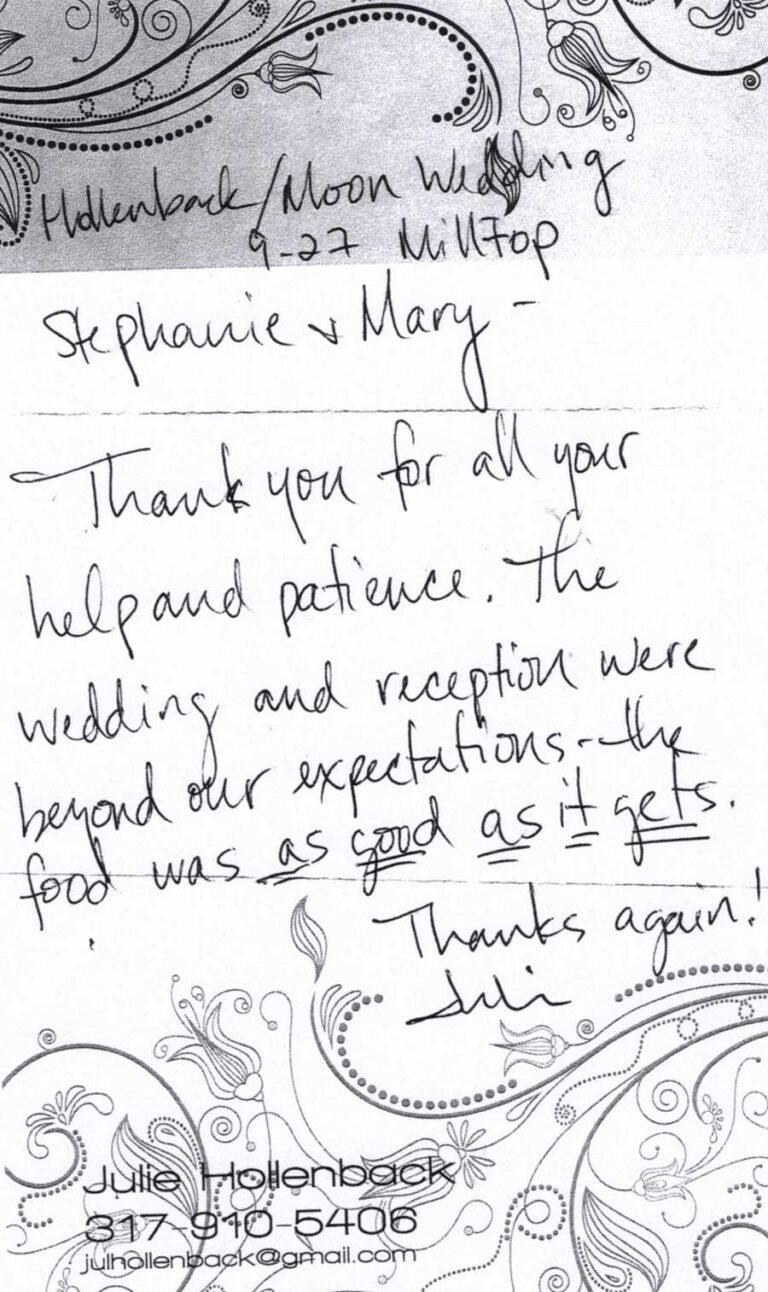 Hollenback/Moon Wedding
9-27 MillTop
Stephanie & Mary -
Thank you for all your
help and patience. The
wedding and reception were
beyond our expectations-the
food was as good as it gets.
Thanks again!
Julie
Julie Hollenback
317-910-5406
julhollenback@gmail.com